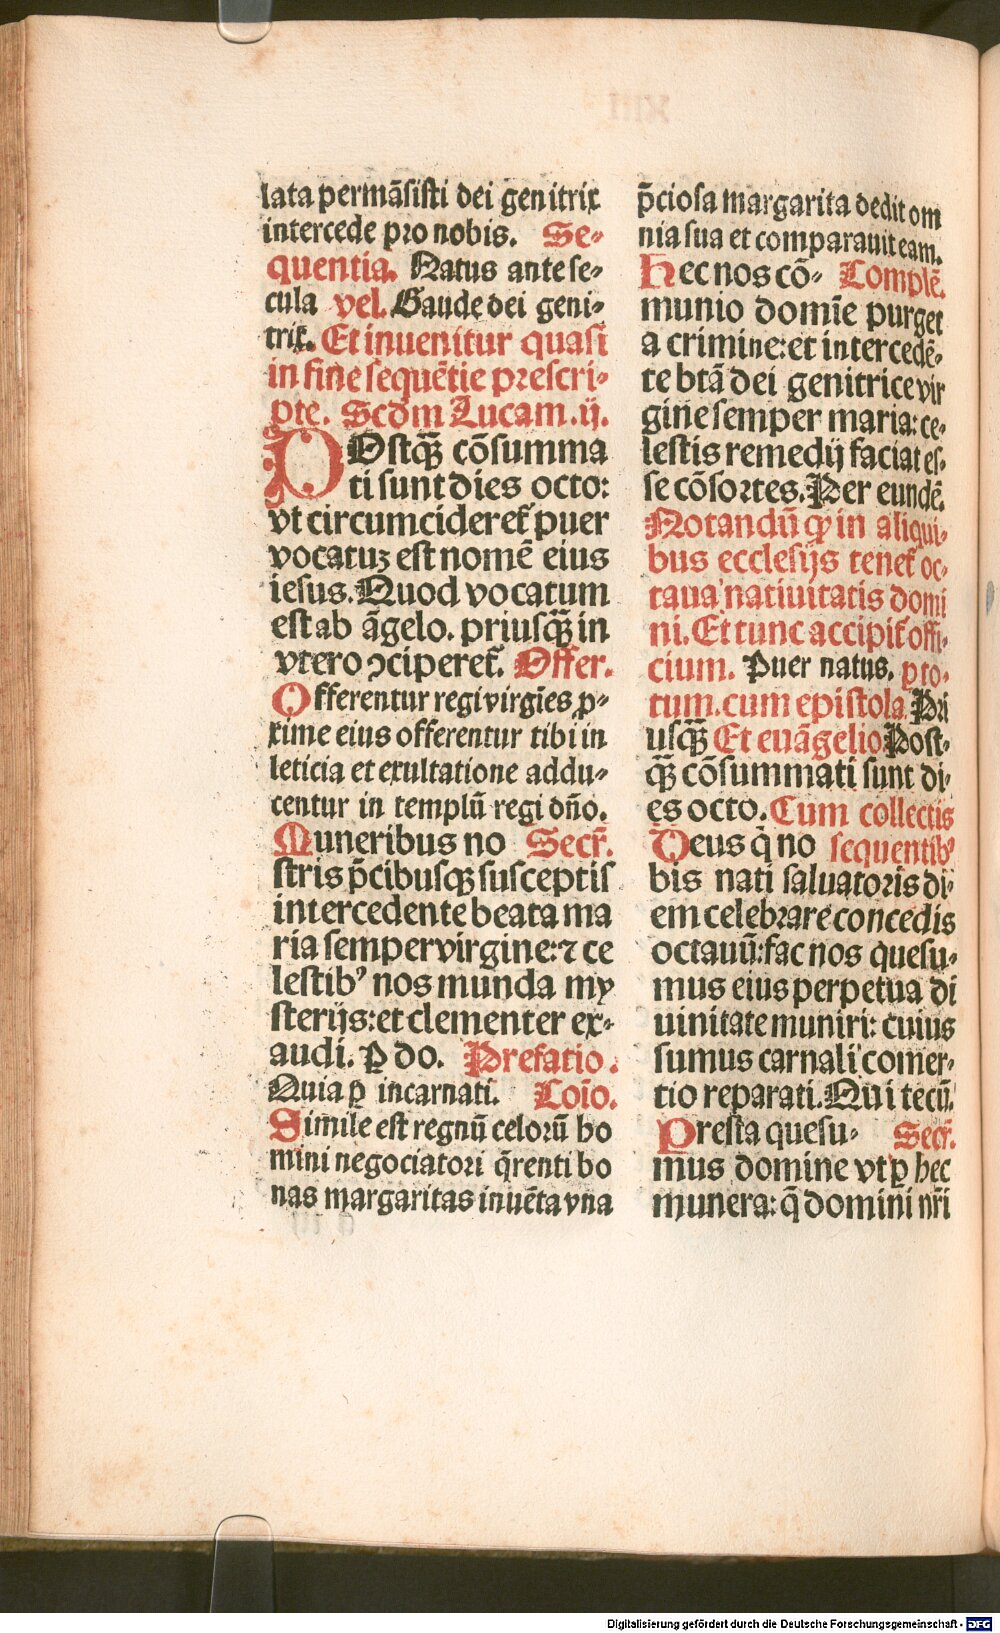 lata permāsisti dei genitrix
intercede pro nobis. Se-
quentia. Natus ante se-
cula vel. Gaude dei geni-
trix. Et inuenitur quasi
in fine sequētie prescri-
pte. Scdm Lucam .ij.
POstqꝫ̄ cōsumma
ti sunt dies octo:
vt circumcideret᷑ puer
vocatuꝫ est nomē eius
iesus. Quod vocatum
est ab āgelo. priusqꝫ̄ in
vtero ꝯciperet᷑. Offer.
Offerentur regi virgīes ꝓ-
xime eius offerentur tibi in
leticia et exultatione addu-
centur in templū regi dn̄o.
Muneribus no Secr̄.
stris p̄cibusqꝫ susceptis
intercedente beata ma
ria semper virgine: ⁊ ce
lestibꝰ nos munda my
sterijs: et clementer ex-
audi. ꝑ do. Prefatio.
Quia ꝑ incarnati. Coīo.
Simile est regnū celorū ho
mini negociatori q̄renti bo
nas margaritas inuēta vna
p̄ciosa margarita dedit om
nia sua et comparauit eam.
Hec nos cō- Complē.
munio domīe purget
a crimine: et intercedē-
te btā dei genitrice vir
gine semper maria: ce-
lestis remedij faciat es-
se cōsortes. Per eundē.
Notandū ꝙ in aliqui-
bus ecclesijs tenet᷑ oc-
taua natiuitatis domi
ni. Et tunc accipit᷑ offi-
cium. Puer natus. ꝓ to-
tum. cum epistola Pri
usqꝫ̄ Et euāgelio Post-
qꝫ̄ cōsummati sunt di-
es octo. Cum collectis
Deus q̇ no sequentibꝰ
bis nati saluatoris di-
em celebrare concedis
octauū: fac nos quesu-
mus eius perpetua di
uinitate muniri: cuius
sumus carnali comer-
tio reparati. Qui tecū.
Presta quesu- Secr̄.
mus domine vt ꝑ hec
munera: q̄ domini nr̄i
Digitalisierung gefördert durch die Deutsche Forschungsgemeinschaft - DFG